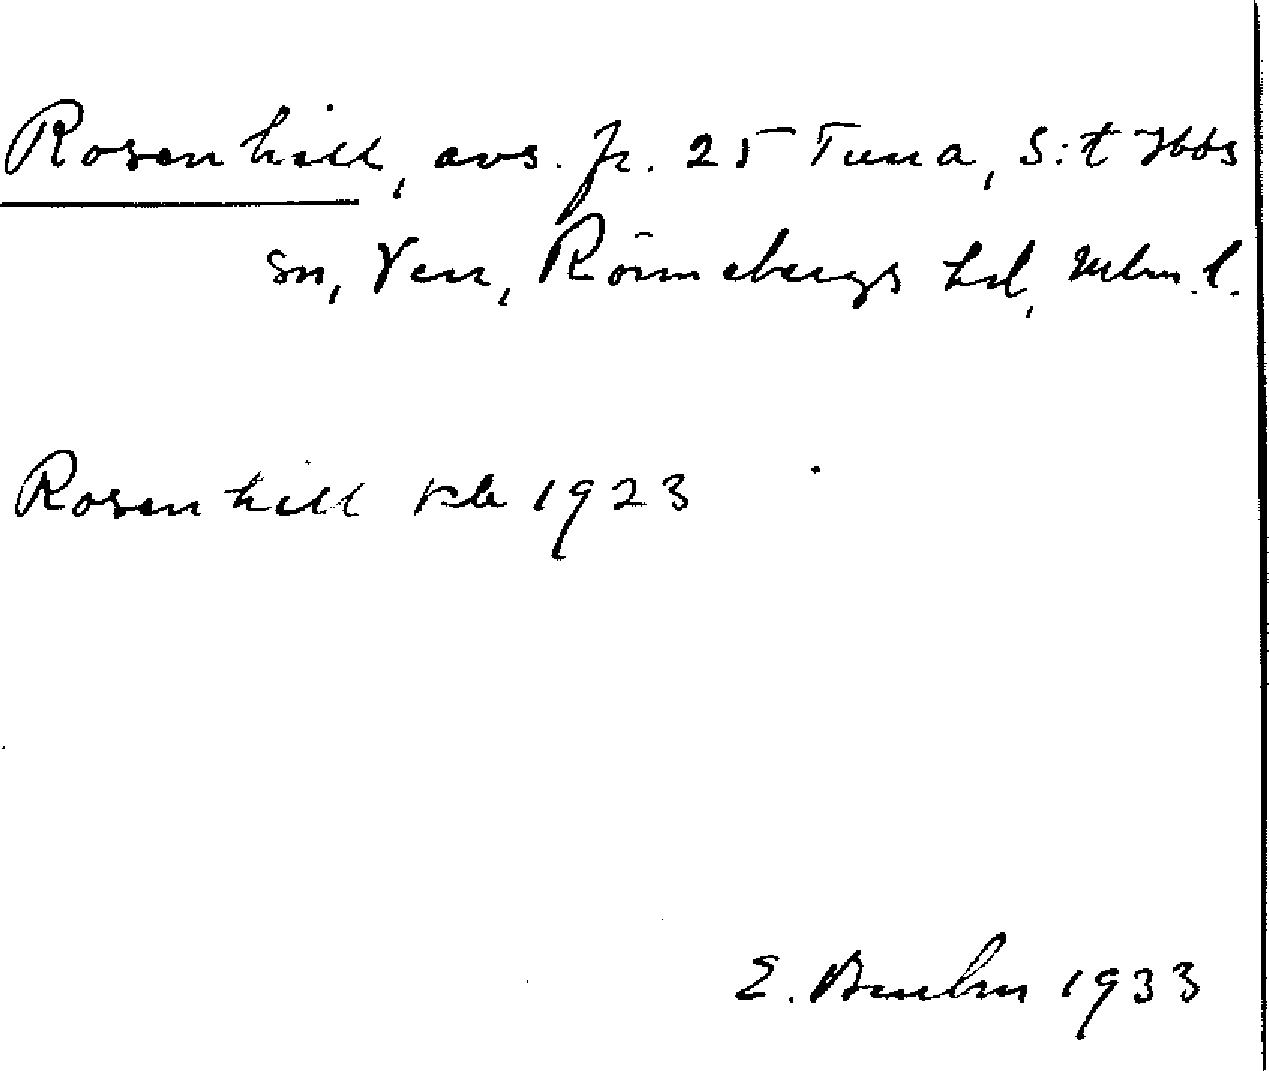 Rosenhill, avs. fr. 25 Tuna, S:t Ibbs
sn, Ven, Rönnebergs hd, Mlm. l.
Rosenhill 1923
E. 1933